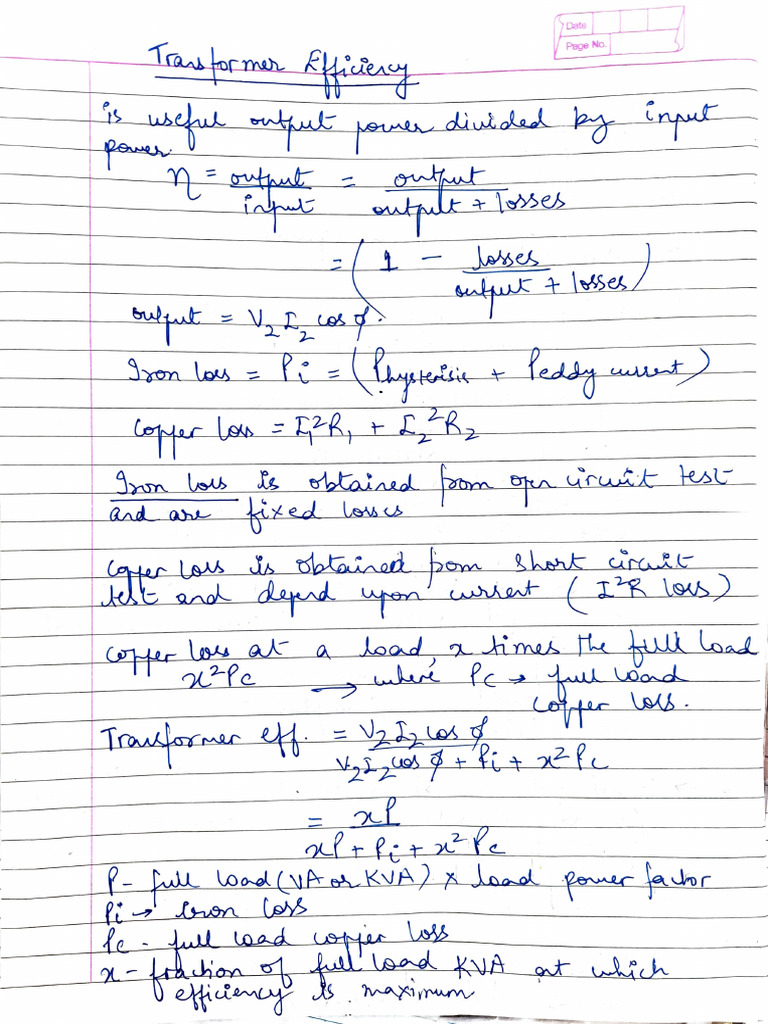 Date
Page No.
Transformer Efficiency
is useful output power divided by input
power
η = output/input = output/(output + losses)
= (1 - losses/(output + losses))
output = V₂I₂ cos ϕ.
Iron loss = Pi = (Physterisis + Peddy current)
Copper loss = I₁²R₁ + I₂²R₂
Iron loss is obtained from open circuit test
and are fixed losses
Copper loss is obtained from short circuit
test and depend upon current (I²R loss)
Copper loss at a load, x times the full load
x²Pc → where Pc → full load
copper loss.
Transformer eff. = V₂I₂ cos ϕ/(V₂I₂ cos ϕ + Pi + x²Pc)
= xP/(xP + Pi + x²Pc)
P - full load (VA or KVA) × load power factor
Pi → Iron loss
Pc - full load copper loss
x - fraction of full load KVA at which
efficiency is maximum